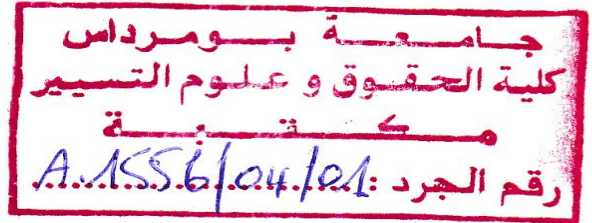 جامعة بومرداس
كلية الحقوق و علوم التسيير
مكتبة
رقم الجرد : A.1556/04/01